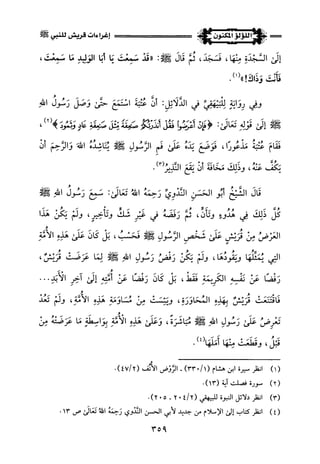 اللؤلؤ المكنون
إغراءات قريش للنبي ﷺ
إِلَى السَّجْدَةِ مِنْهَا، فَسَجَدَ، ثُمَّ قَالَ ﷺ: «قَدْ سَمِعْتَ يَا أَبَا الوَلِيدِ مَا سَمِعْتَ،
فَأَنْتَ وَذَاكَ!»(١).
وفِي رِوَايَةٍ لِلْبَيْهَقِيِّ فِي الدَّلَائِلِ: أَنَّ عُتْبَةَ اسْتَمَعَ حَتَّى وَصَلَ رَسُولُ اللهِ
ﷺ إِلَى قَوْلِهِ تَعَالَى: ﴿فَإِنْ أَعْرَضُوا فَقُلْ أَنذَرْتُكُمْ صَاعِقَةً مِّثْلَ صَاعِقَةِ عَادٍ وَثَمُودَ﴾(٢)،
فَقَامَ عُتْبَةُ مَذْعُورًا، فَوَضَعَ يَدَهُ عَلَى فَمِ الرَّسُولِ ﷺ يُنَاشِدُهُ اللهَ وَالرَّحِمَ أَنْ
يَكُفَّ عَنْهُ، وذَلِكَ مَخَافَةَ أَنْ يَقَعَ النَّذِيرُ(٣).
قَالَ الشَّيْخُ أَبُو الحَسَنِ النَّدْوِيُّ رَحِمَهُ اللهُ تَعَالَى: سَمِعَ رَسُولُ اللهِ ﷺ
كُلَّ ذَلِكَ فِي هُدُوءٍ وتَأَنٍّ، ثُمَّ رَفَضَهُ فِي غَيْرِ شَكٍّ وتَأْخِيرٍ، ولَمْ يَكُنْ هَذَا
العَرْضُ مِنْ قُرَيْشٍ عَلَى شَخْصِ الرَّسُولِ ﷺ فَحَسْبُ، بَلْ كَانَ عَلَى هَذِهِ الأُمَّةِ
التِي يُمَثِّلُهَا ويَقُودُهَا، ولَمْ يَكُنْ رَفْضُ رَسُولِ اللهِ ﷺ لِمَا عَرَضَتْ قُرَيْشٌ،
رَفْضًا عَنْ نَفْسِهِ الكَرِيمَةِ فَقَطْ، بَلْ كَانَ رَفْضًا عَنْ أُمَّتِهِ إِلَى آخِرِ الأَبَدِ...
فَاقْتَنَعَتْ قُرَيْشٌ بِهَذِهِ المُحَاوَرَةِ، ويَئِسَتْ مِنْ مُسَاوَمَةِ هَذِهِ الأُمَّةِ، ولَمْ تَعُدْ
تَعْرِضُ عَلَى رَسُولِ اللهِ ﷺ مُبَاشَرَةً، وَعَلَى هَذِهِ الأُمَّةِ بِوَاسِطَةِ مَا عَرَضَتْهُ مِنْ
قَبْلُ، وقَطَعَتْ مِنْهَا أَمَلَهَا(٤).
(١) انظر سيرة ابن هشام (٣٣٠/١) - الرَّوْض الأُنُف (٤٧/٢).
(٢) سورة فصلت آية (١٣).
(٣) انظر دلائل النبوة للبيهقي (٢٠٤/٢ - ٢٠٥).
(٤) انظر كتاب إلى الإسلام من جديد لأبي الحسن النَّدْوي رَحِمَهُ اللهُ تَعَالَى ص ١٣.
٣٥٩